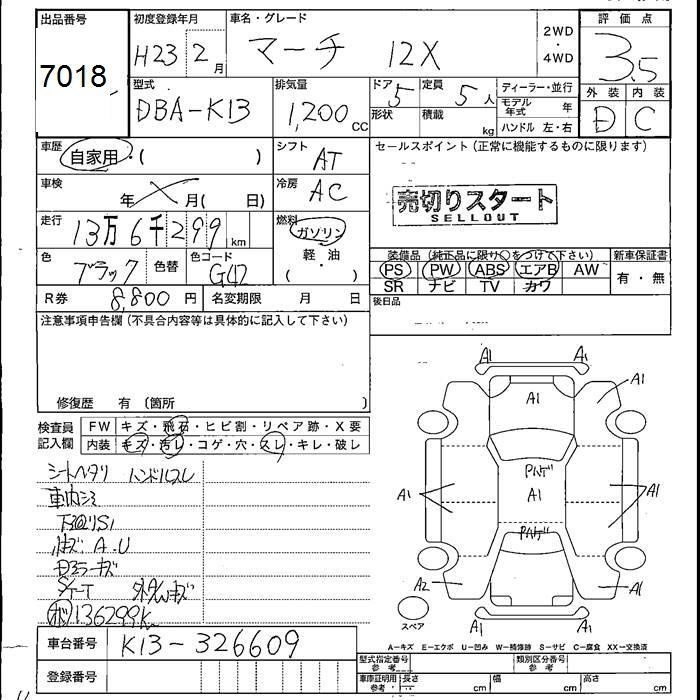 出品番号
7018
初度登録年月
H23 2月
車名・グレード
マーチ 12X
2WD
・
4WD
評価点
3.5
型式
DBA-K13
排気量
1,200 CC
ドア 5
形状
定員 5人
積載 kg
ディーラー・並行
モデル年式 年
ハンドル 左・右
外装 内装
D C
車歴
自家用・( )
シフト
AT
セールスポイント(正常に機能するものに限ります)
車検
年 月( 日)
冷房
AC
売切りスタート
SELLOUT
走行
13万6千299km
燃料
ガソリン
軽・油
・
色
ブラック
色替
色コード
G42
装備品(純正品に限り○をつけて下さい)
新車保証書
PS PW ABS エアB AW
SR ナビ TV カワ
有・無
R券 8,800円
名変期限 月 日
後日品
注意事項申告欄(不具合内容等は具体的に記入して下さい)
修復歴 有 〔箇所 〕
検査員
記入欄
FW キズ・飛石・ヒビ割・リペア跡・X要
内装 キズ・汚レ・コゲ・穴・スレ・キレ・破レ
シートヘタリ ハンドルスレ
車内シミ
A.U
136299K
A1 A1
A1
A1
A1
パンダ
A1
A1
パンダ
A1
A2
A1
A1 A1
スペア
車台番号
K13-326609
登録番号
A=キズ E=エクボ U=凹み W=補修跡 S=サビ C=腐食 XX=交換済
型式指定番号
参考
類別区分番号
参考
車庫証明用
参考
長さ cm
幅 cm
高さ cm